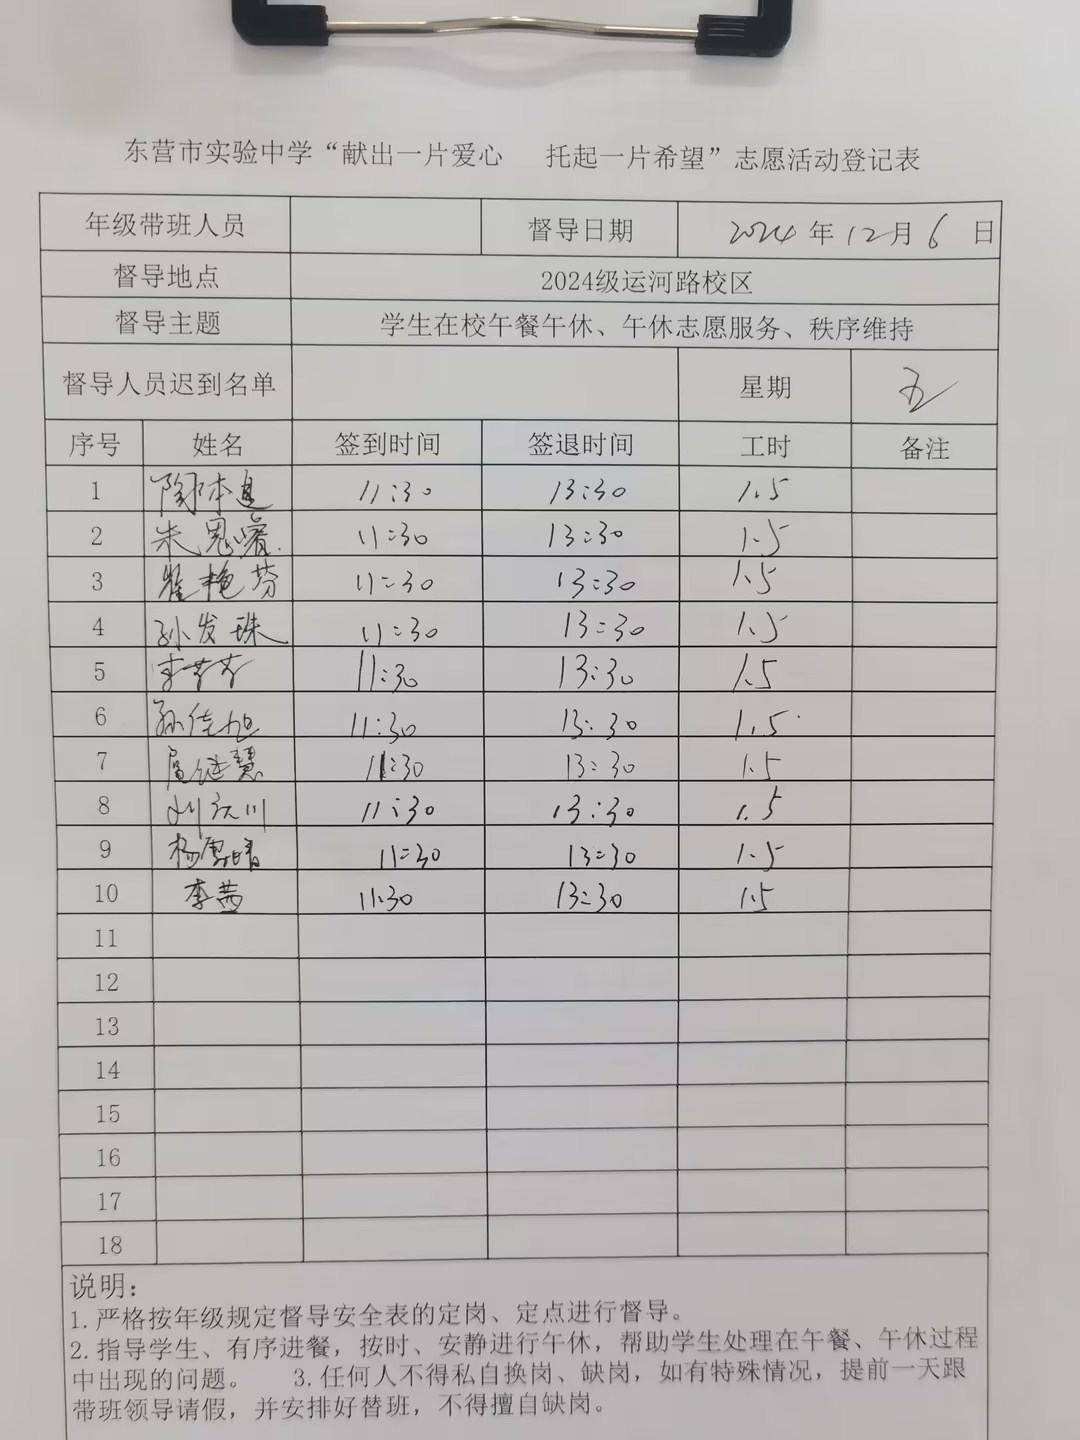 东营市实验中学“献出一片爱心 托起一片希望”志愿活动登记表
年级带班人员 督导日期 2024年12月6日
督导地点 2024级运河路校区
督导主题 学生在校午餐午休、午休志愿服务、秩序维持
督导人员迟到名单 星期 五
序号 姓名 签到时间 签退时间 工时 备注
1 11:30 13:30 1.5
2 朱恩睿 11:30 13:30 1.5
3 翟艳芬 11:30 13:30 1.5
4 孙发珠 11:30 13:30 1.5
5 李芳芳 11:30 13:30 1.5
6 孙佳旭 11:30 13:30 1.5
7 11:30 13:30 1.5
8 11:30 13:30 1.5
9 杨雪晴 11:30 13:30 1.5
10 李茜 11:30 13:30 1.5
11
12
13
14
15
16
17
18
说明：
1.严格按年级规定督导安全表的定岗、定点进行督导。
2.指导学生、有序进餐，按时、安静进行午休，帮助学生处理在午餐、午休过程
中出现的问题。 3.任何人不得私自换岗、缺岗，如有特殊情况，提前一天跟
带班领导请假，并安排好替班，不得擅自缺岗。